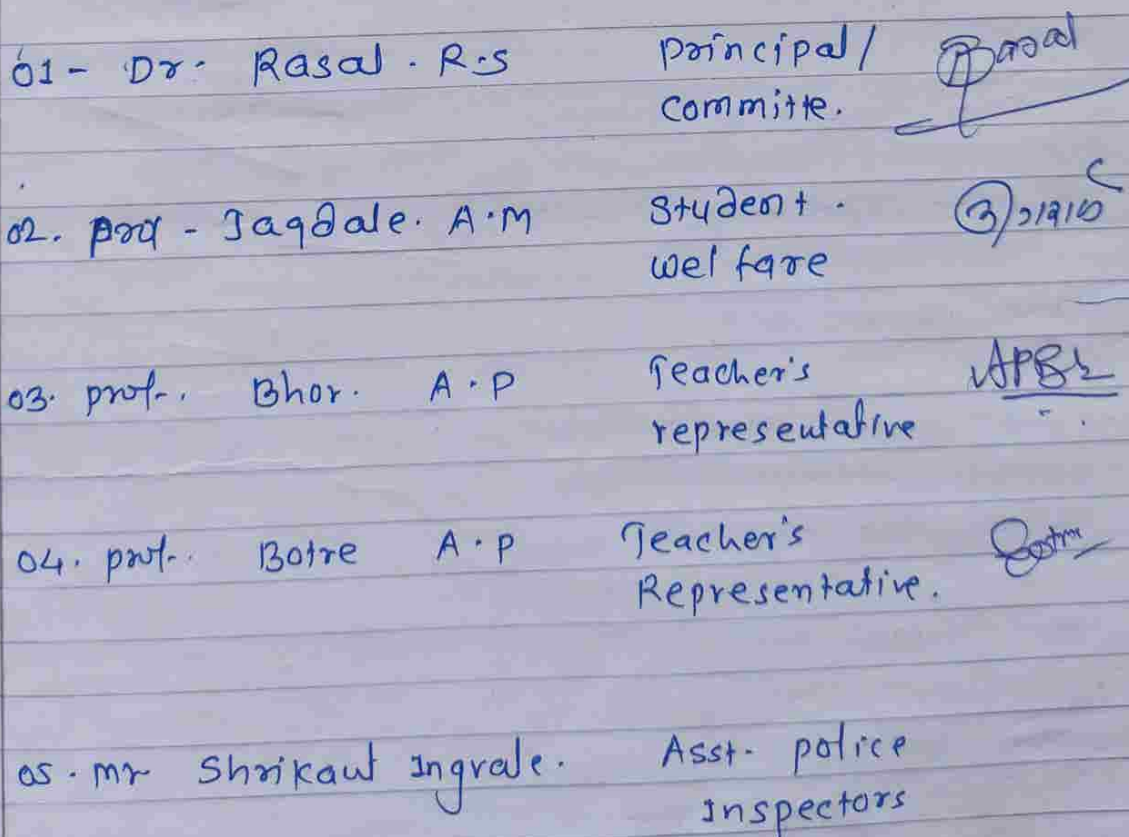 01 - Dr. Rasal . R.S principal /
committe.
02. prof - Jagdale. A.M Student .
welfare
03. prof.. Bhor. A.P Teacher's
representative
04. prof.. Botre A.P Teacher's
Representative.
05. mr Shrikant Ingvale. Asst. police
Inspectors